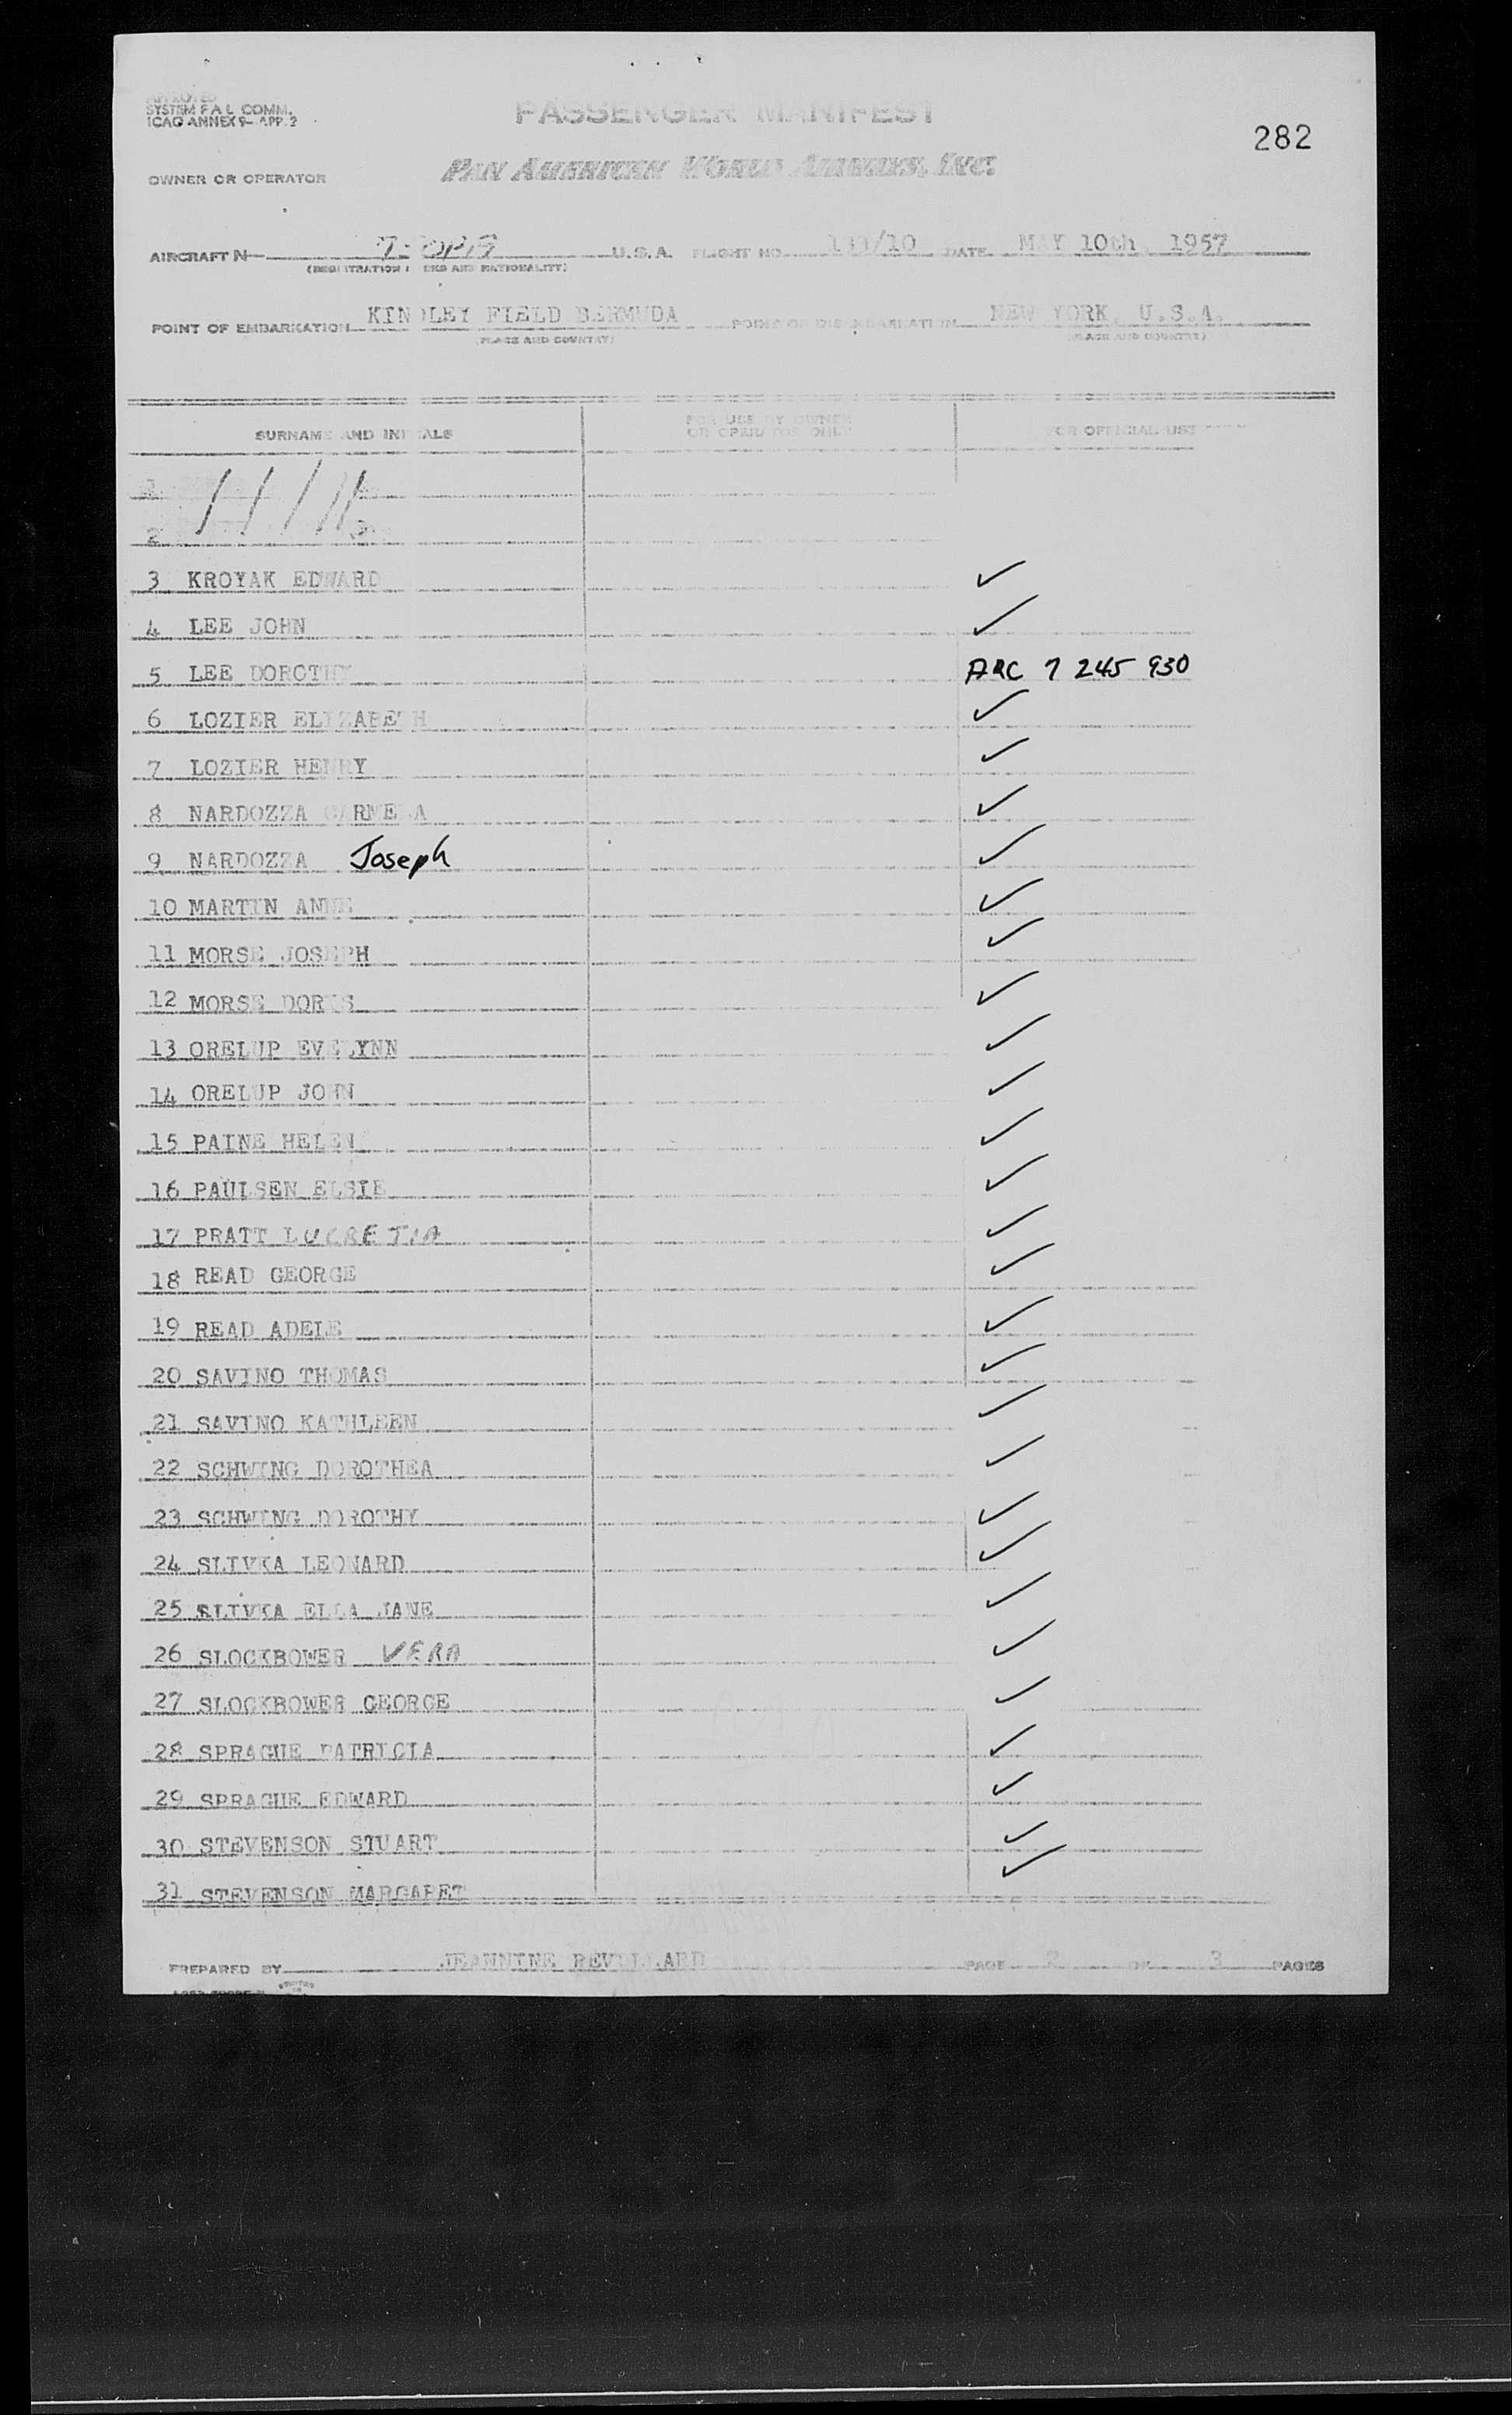 APPROVED
SYSTEM F A L COMM.
ICAO ANNEX 9- APP. 2
PASSENGER MANIFEST
282
OWNER OR OPERATOR PAN AMERICAN WORLD AIRWAYS, INC.
AIRCRAFT N U.S.A. FLIGHT NO. /10 DATE MAY 10th, 1957
(REGISTRATION MARKS AND NATIONALITY)
POINT OF EMBARKATION KINDLEY FIELD BERMUDA POINT OF DISEMBARKATION NEW YORK, U.S.A.
(PLACE AND COUNTRY) (PLACE AND COUNTRY)
SURNAME AND INITIALS FOR USE BY OWNER OR OPERATOR ONLY FOR OFFICIAL USE
1
2
3 KROYAK EDWARD ✓
4 LEE JOHN ✓
5 LEE DOROTHY ARC 7 245 930
6 LOZIER ELIZABETH ✓
7 LOZIER HENRY ✓
8 NARDOZZA CARMELA ✓
9 NARDOZZA Joseph ✓
10 MARTIN ANNE ✓
11 MORSE JOSEPH ✓
12 MORSE DORIS ✓
13 ORELUP EVELYNN ✓
14 ORELUP JOHN ✓
15 PAINE HELEN ✓
16 PAULSEN ELSIE ✓
17 PRATT LUCRETIA ✓
18 READ GEORGE ✓
19 READ ADELE ✓
20 SAVINO THOMAS ✓
21 SAVINO KATHLEEN ✓
22 SCHWING DOROTHEA ✓
23 SCHWING DOROTHY ✓
24 SLIVKA LEONARD ✓
25 SLIVKA ELLA JANE ✓
26 SLOCKBOWER VERA ✓
27 SLOCKBOWER GEORGE ✓
28 SPRAGUE PATRICIA ✓
29 SPRAGUE EDWARD ✓
30 STEVENSON STUART ✓
31 STEVENSON MARGARET ✓
PREPARED BY JEANNINE REVOILLARD PAGE 2 OF 3 PAGES